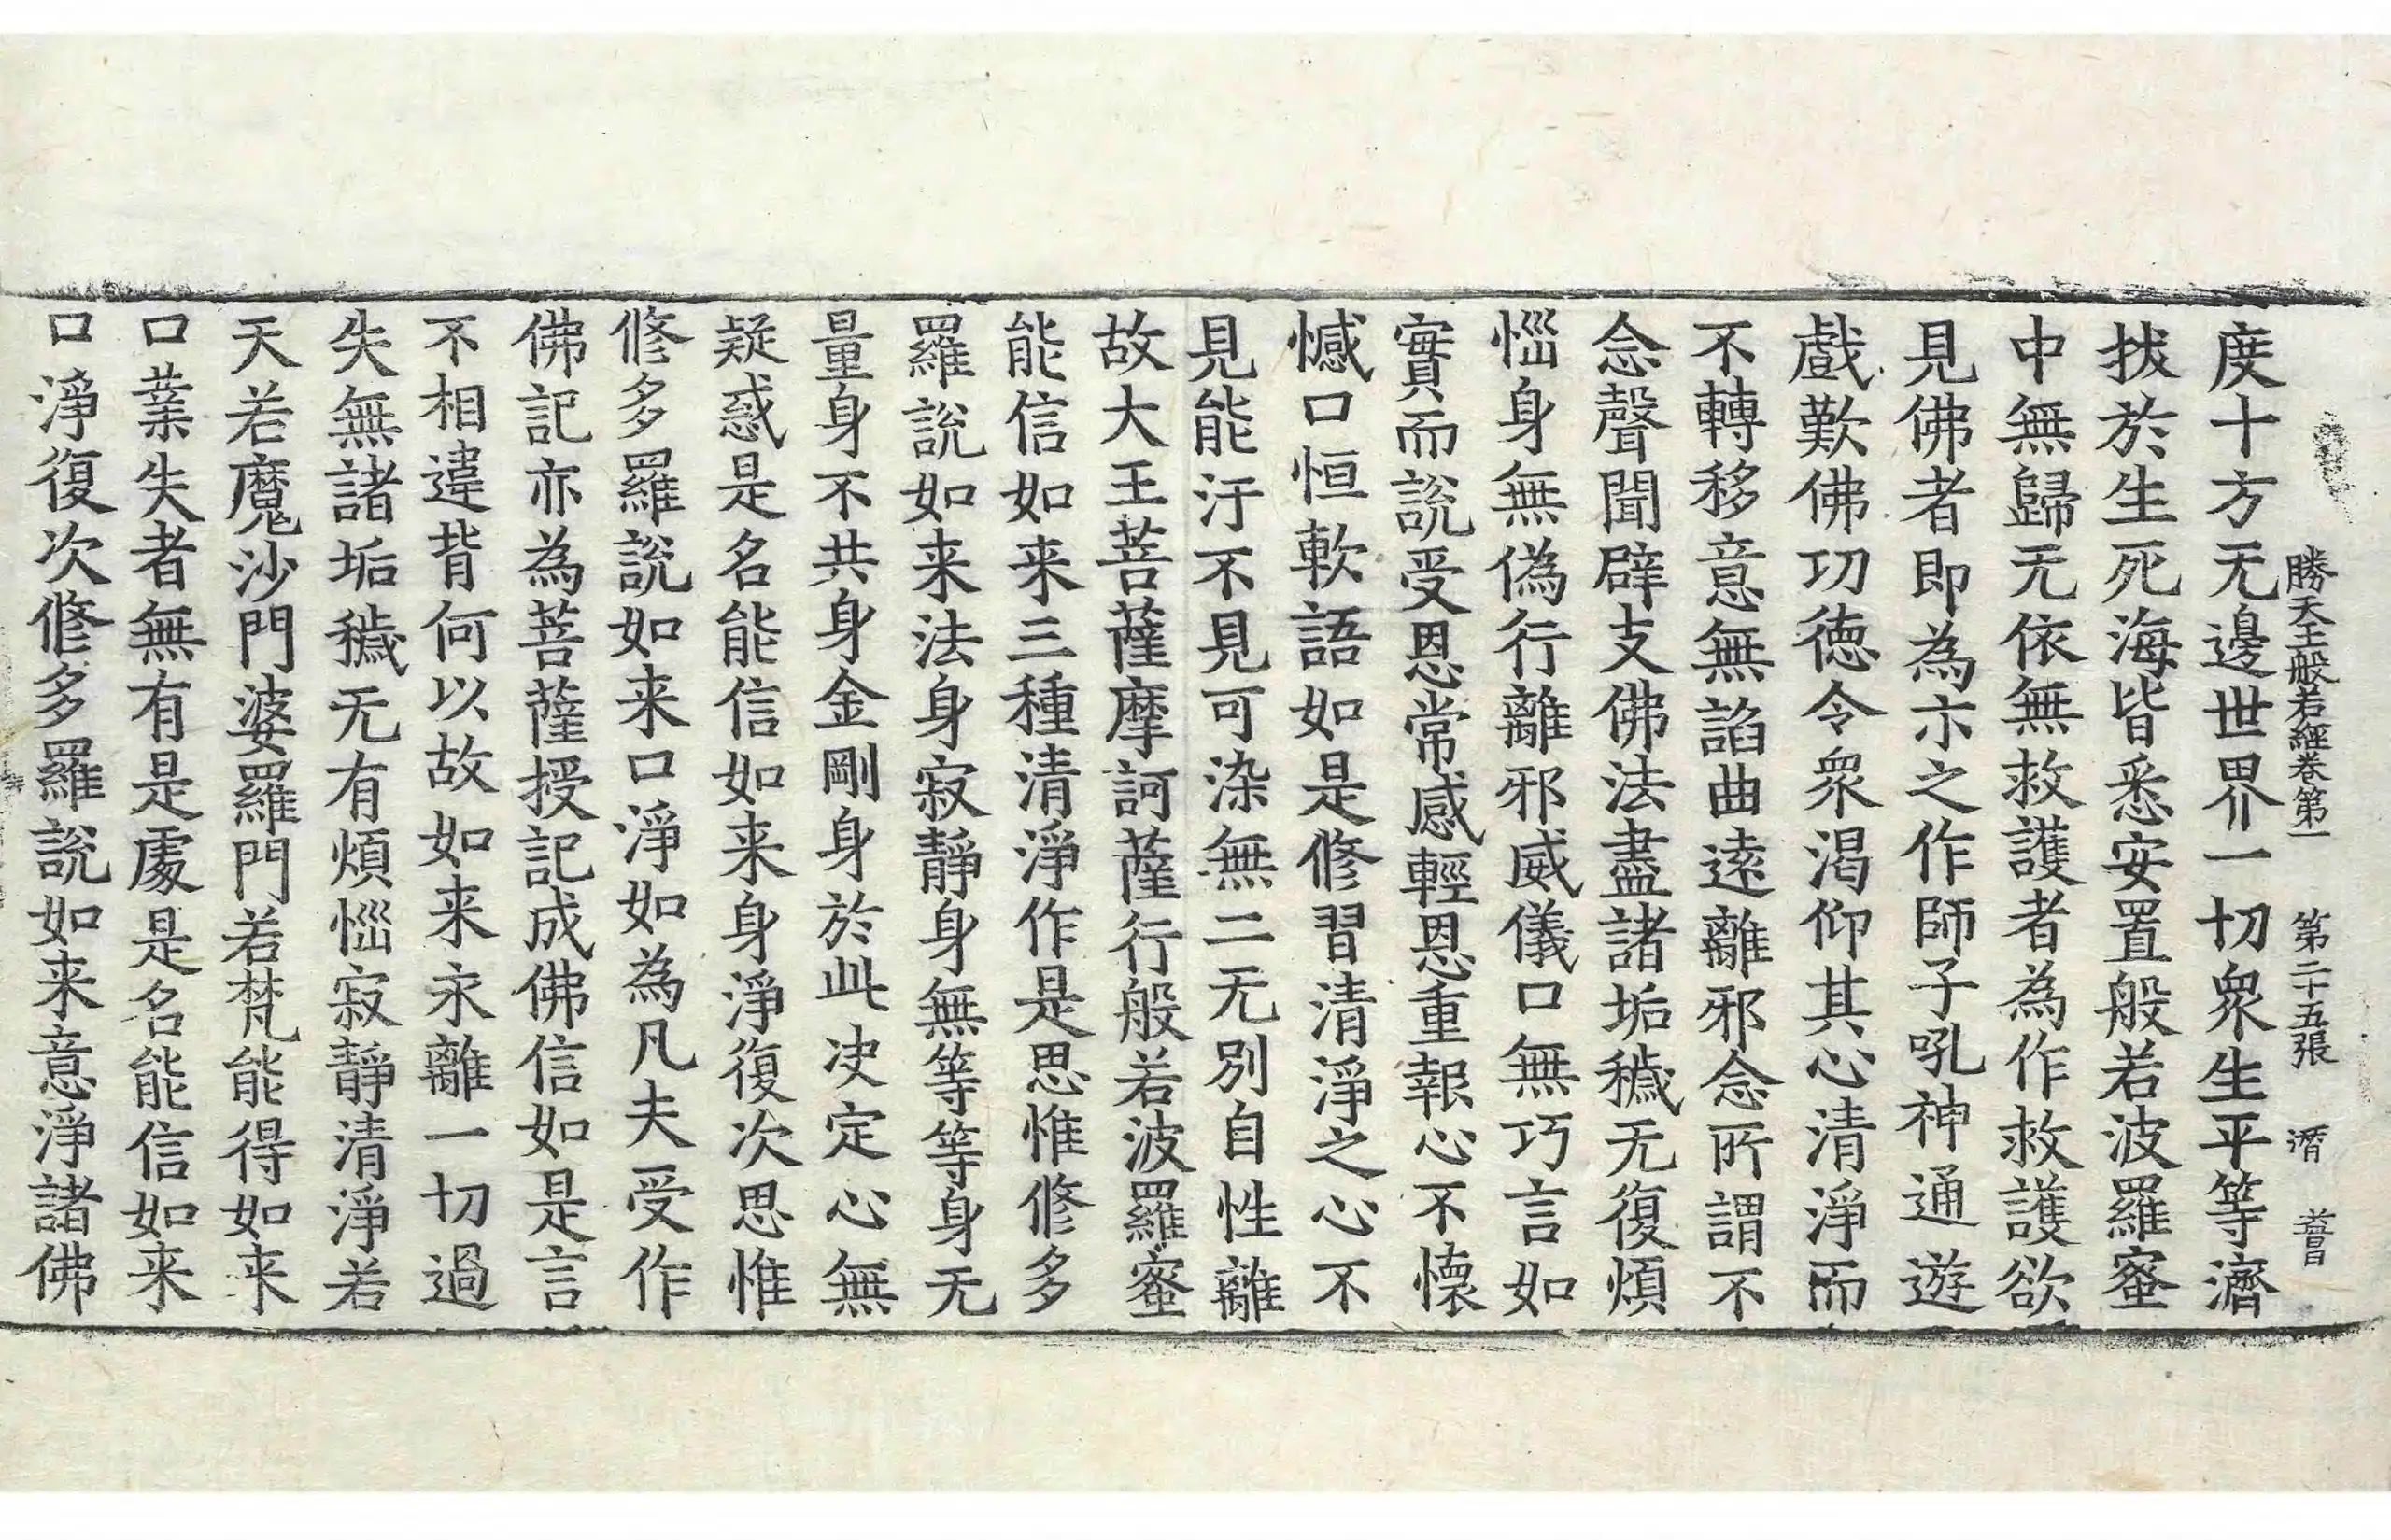 勝天王般若經卷第一 第二十五張
度十方无邊世界一切衆生平等濟
拔於生死海皆悉安置般若波羅蜜
中無歸无依無救護者為作救護欲
見佛者即為示之作師子吼神通遊
戲歎佛功德令衆渴仰其心清淨而
不轉移意無諂曲遠離邪念所謂不
念聲聞辟支佛法盡諸垢穢无復煩
惱身無偽行離邪威儀口無巧言如
實而說受恩常感輕恩重報心不懷
憾口恒軟語如是修習清淨之心不
見能汙不見可染無二无別自性離
故大王菩薩摩訶薩行般若波羅蜜
能信如来三種清淨作是思惟修多
羅說如来法身寂靜身無等等身无
量身不共身金剛身於此决定心無
疑惑是名能信如来身淨復次思惟
修多羅說如来口淨如為凡夫受作
佛記亦為菩薩授記成佛信如是言
不相違背何以故如来永離一切過
失無諸垢穢无有煩惱寂靜清淨若
天若魔沙門婆羅門若梵能得如来
口業失者無有是處是名能信如来
口淨復次修多羅說如来意淨諸佛